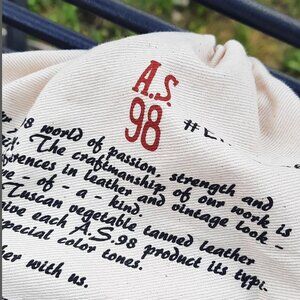 A.S.
98
8 world of passion, strength and
The craftmanship of our work is
ferences in leather and vintage look -
- of - a - kind.
Tuscan vegetable tanned leather
ive each A.S.98 product its typi
special color tones.
her with us.